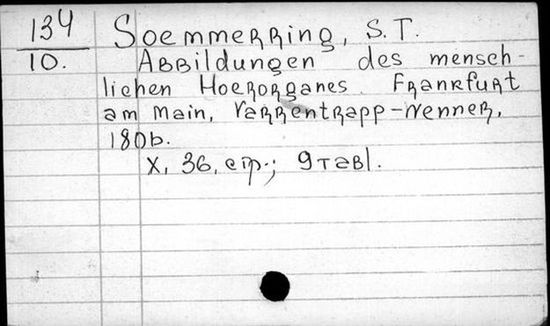 134
10.
Soemmerring, S.T.
Abbildungen des mensch-
lichen Hoerorganes. Frankfurt
am Main, Varrentrapp-Wenner,
1806.
X, 36, стр.; 9 tabl.